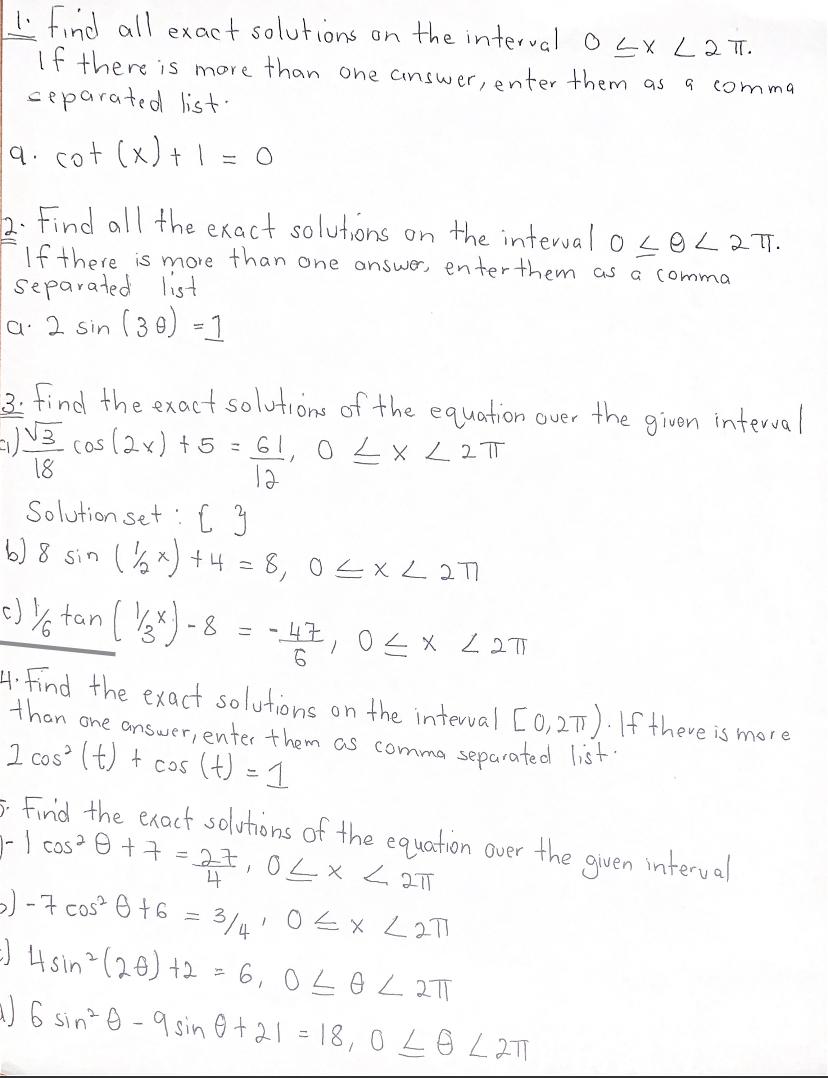 1. Find all exact solutions on the interval 0 ≤ x < 2π.
If there is more than one answer, enter them as a comma
separated list.
a. cot (x) + 1 = 0
2. Find all the exact solutions on the interval 0 ≤ θ < 2π.
If there is more than one answer, enter them as a comma
separated list
a. 2 sin (3θ) = 1
3. Find the exact solutions of the equation over the given interval
a) √3/18 cos (2x) + 5 = 61/12, 0 ≤ x < 2π
Solution set : { }
b) 8 sin (1/2 x) + 4 = 8, 0 ≤ x < 2π
c) 1/6 tan (1/3 x) - 8 = -47/6, 0 ≤ x < 2π
4. Find the exact solutions on the interval [0, 2π). If there is more
than one answer, enter them as comma separated list.
2 cos² (t) + cos (t) = 1
5. Find the exact solutions of the equation over the given interval
) - 1 cos² θ + 7 = 27/4, 0 ≤ x < 2π
b) -7 cos² θ + 6 = 3/4, 0 ≤ x < 2π
c) 4 sin² (2θ) + 2 = 6, 0 ≤ θ < 2π
d) 6 sin² θ - 9 sin θ + 21 = 18, 0 ≤ θ < 2π